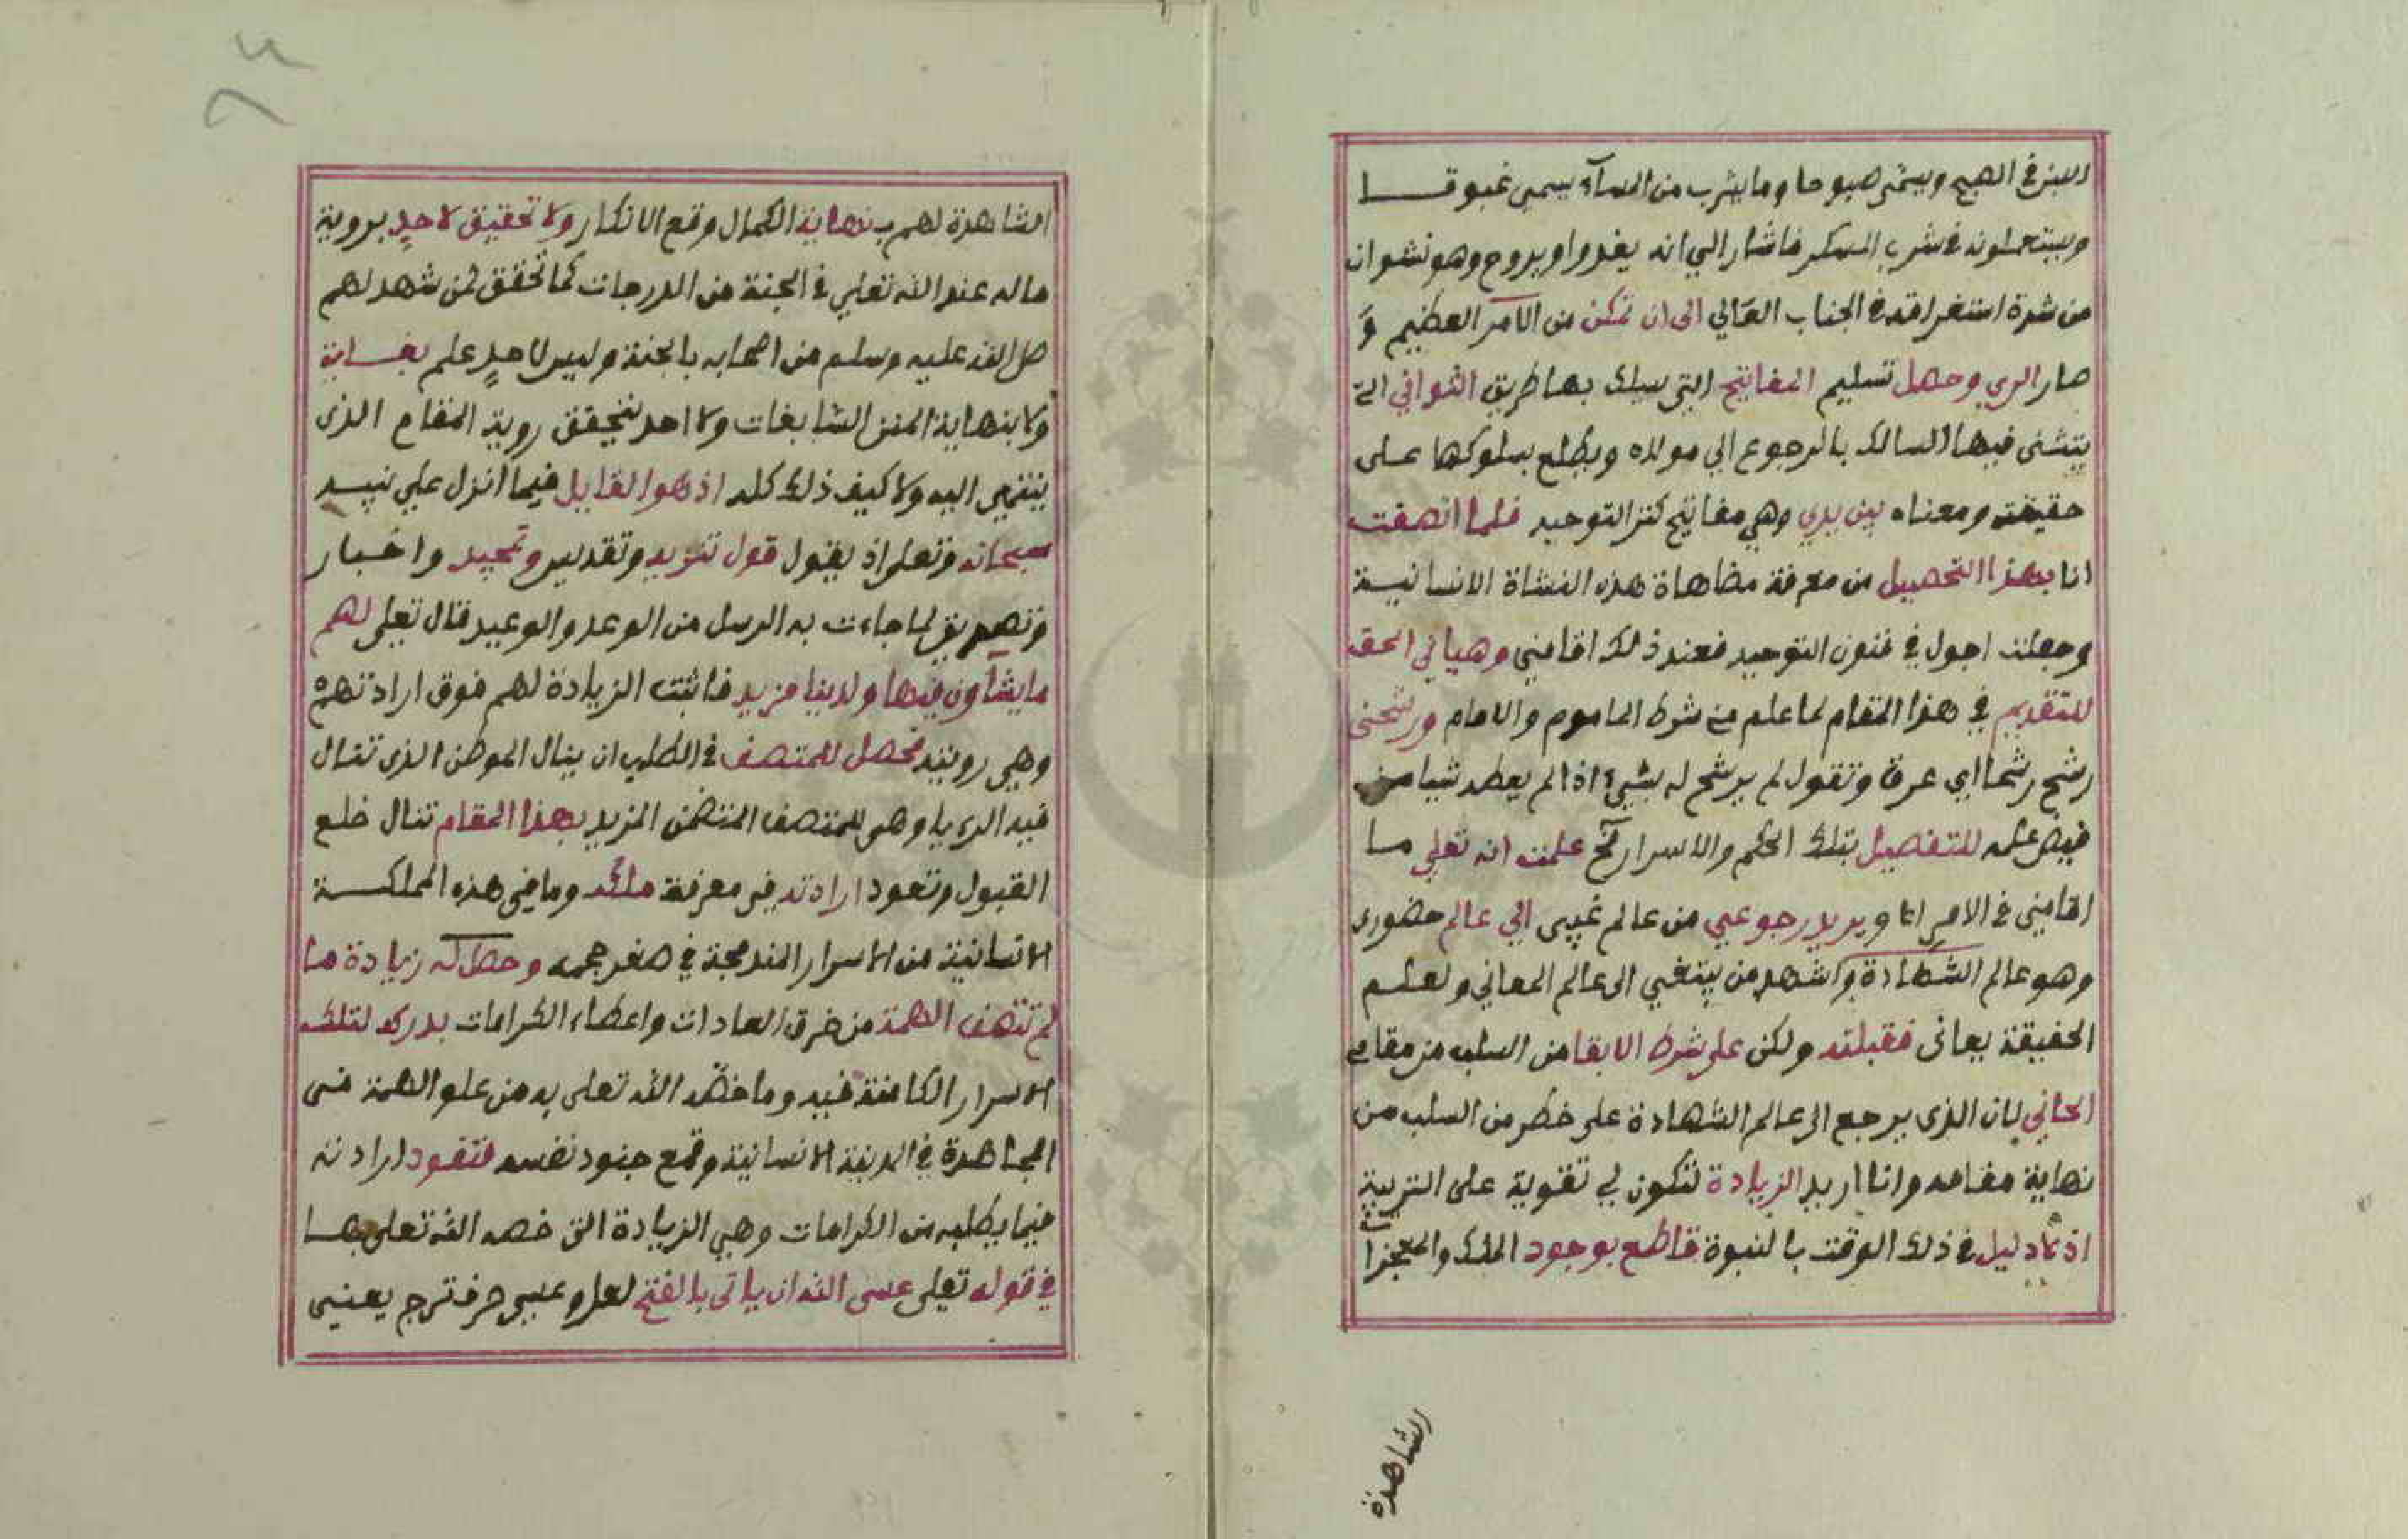 اللبن في الصبح ويسمى صبوحا وما يشرب من المساء يسمى غبوقا
ويستعملونه في شرب المسكر فاشار الي انه يغدوا ويروح وهو نشوان
من شدة استغراقه في الجناب العالي الى ان تمكن من الامر العظيم و
صار الري وحصل تسليم المفاتيح التي سلك بها طريق الثواني التي
يتثنى فيها السالك بالرجوع الي مولاه ويطلع بسلوكها على
حقيقته ومعناه بين يدي وهي مفاتيح كنز التوحيد فلما اتصفت
انا بهذا التحصيل من معرفة مضاهاة هذه النشاة الانسانية
وجعلت اجول في فنون التوحيد فعند ذلك اقامني وهياني الحق
للتقديم في هذا المقام لما علم من شرط الماموم والامام ورشحني
رشح رشحا اي عرق وتقول لم يرشح له بشيء اذا لم يعطه شيا من
فيض علمه للتفصيل بتلك الحكم والاسرار علمت انه تعلي ما
اقامني في الامر اما ويريد رجوعي من عالم غيبي الي عالم حضوري
وهو عالم الشهادة واشهد من ينتهي الى عالم المعاني ولعلم
الحقيقة يعانى فقبلته ولكن على شرط الابقا من السلب من مقامي
الحاني لان الذي يرجع الى عالم الشهادة على خطر من السلب من
نهاية مقامه وانا اريد الزيادة لتكون لي تقوية على التربية
اذ لا دليل في ذلك الوقت بالنبوة قاطع بوجود الملك والمعجزات
الشاهدة
الشاهدة لهم بنهاية الكمال وقع الانكار ولا تحقيق لاحد بروية
ماله عند الله تعلي في الجنة من الدرجات كما تحقق لمن شهد لهم
صلى الله عليه وسلم من اصحابه بالجنة وليس لاحد علم بغاية
ولا بنهاية المنن السابغات ولا احد يتحقق روية المقام الذي
ينتهي اليه ولا كيف ذلك كله اذ هو القايل فيما انزل على نبيه
سبحانه وتعلى اذ يقول قول تنزيه وتقديس وتمجيد واخبار
وتصديق لما جاءت به الرسل من الوعد والوعيد قال تعلى لهم
ما يشاون فيها ولدينا مزيد فاثبت الزيادة لهم فوق ارادتهم
وهي رويته فحصل للمتصف في الطلب ان ينال الموطن الذي تنال
فيه الريا وهو للمتصف المتضمن المزيد بهذا المقام تنال خلع
القبول وتعود ارادته في معرفة ملكه وما في هذه المملكة
الانسانية من الاسرار المندمجة في صغر حجمه وحصل له زيادة ما
لم تتصف الهمة من خرق العادات واعطاء الكرامات بدركه لتلك
الاسرار الكامنة فيه وما خصه الله تعلى به من علو الهمة في
المجاهدة في المدينة الانسانية وقمع جنود نفسه فتقود ارادته
فيما يطلبه من الكرامات وهي الزيادة التي خصه الله تعلى بها
في قوله تعلى عسى الله ان ياتى بالفتح لعل وعسى حرف ترج يعني